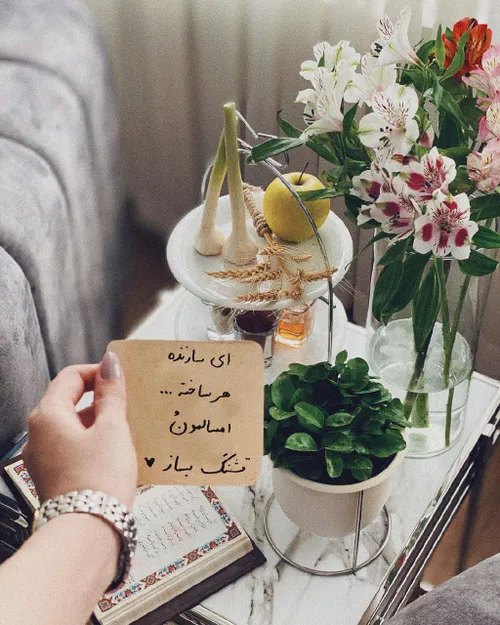 ای سازنده
هر ساخته ...
امسالمونُ
قشنگ بساز ♥